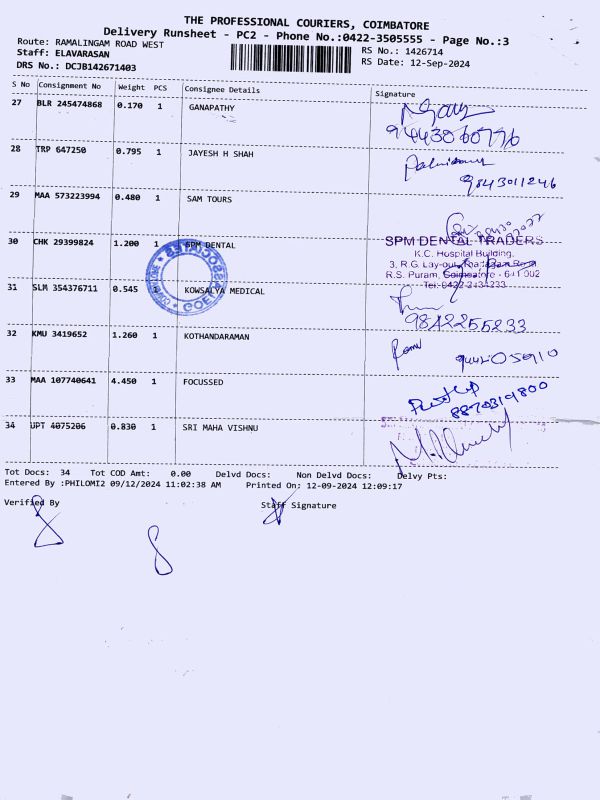 THE PROFESSIONAL COURIERS, COIMBATORE
Delivery Runsheet - PC2 - Phone No.:0422-3505555 - Page No.:3
Route: RAMALINGAM ROAD WEST
Staff: ELAVARASAN
DRS No.: DCJB142671403
RS No.: 1426714
RS Date: 12-Sep-2024
S No Consignment No Weight PCS Consignee Details Signature
27 BLR 245474868 0.170 1 GANAPATHY
28 TRP 647250 0.795 1 JAYESH H SHAH
9843011246
29 MAA 573223994 0.480 1 SAM TOURS
30 CHK 29399824 1.200 1 SPM DENTAL
SPM DENTAL TRADERS
K.C. Hospital Building,
3, R.G. Lay-out,
R.S. Puram, Coimbatore - 641 002
Tel: 0422-2434233
31 SLM 354376711 0.545 1 KOWSALYA MEDICAL
9842255233
32 KMU 3419652 1.260 1 KOTHANDARAMAN
33 MAA 107740641 4.450 1 FOCUSSED
8870319800
34 UPT 4075206 0.830 1 SRI MAHA VISHNU
Tot Docs: 34 Tot COD Amt: 0.00 Delvd Docs: Non Delvd Docs: Delvy Pts:
Entered By :PHILOMI2 09/12/2024 11:02:38 AM Printed On: 12-09-2024 12:09:17
Verified By Staff Signature